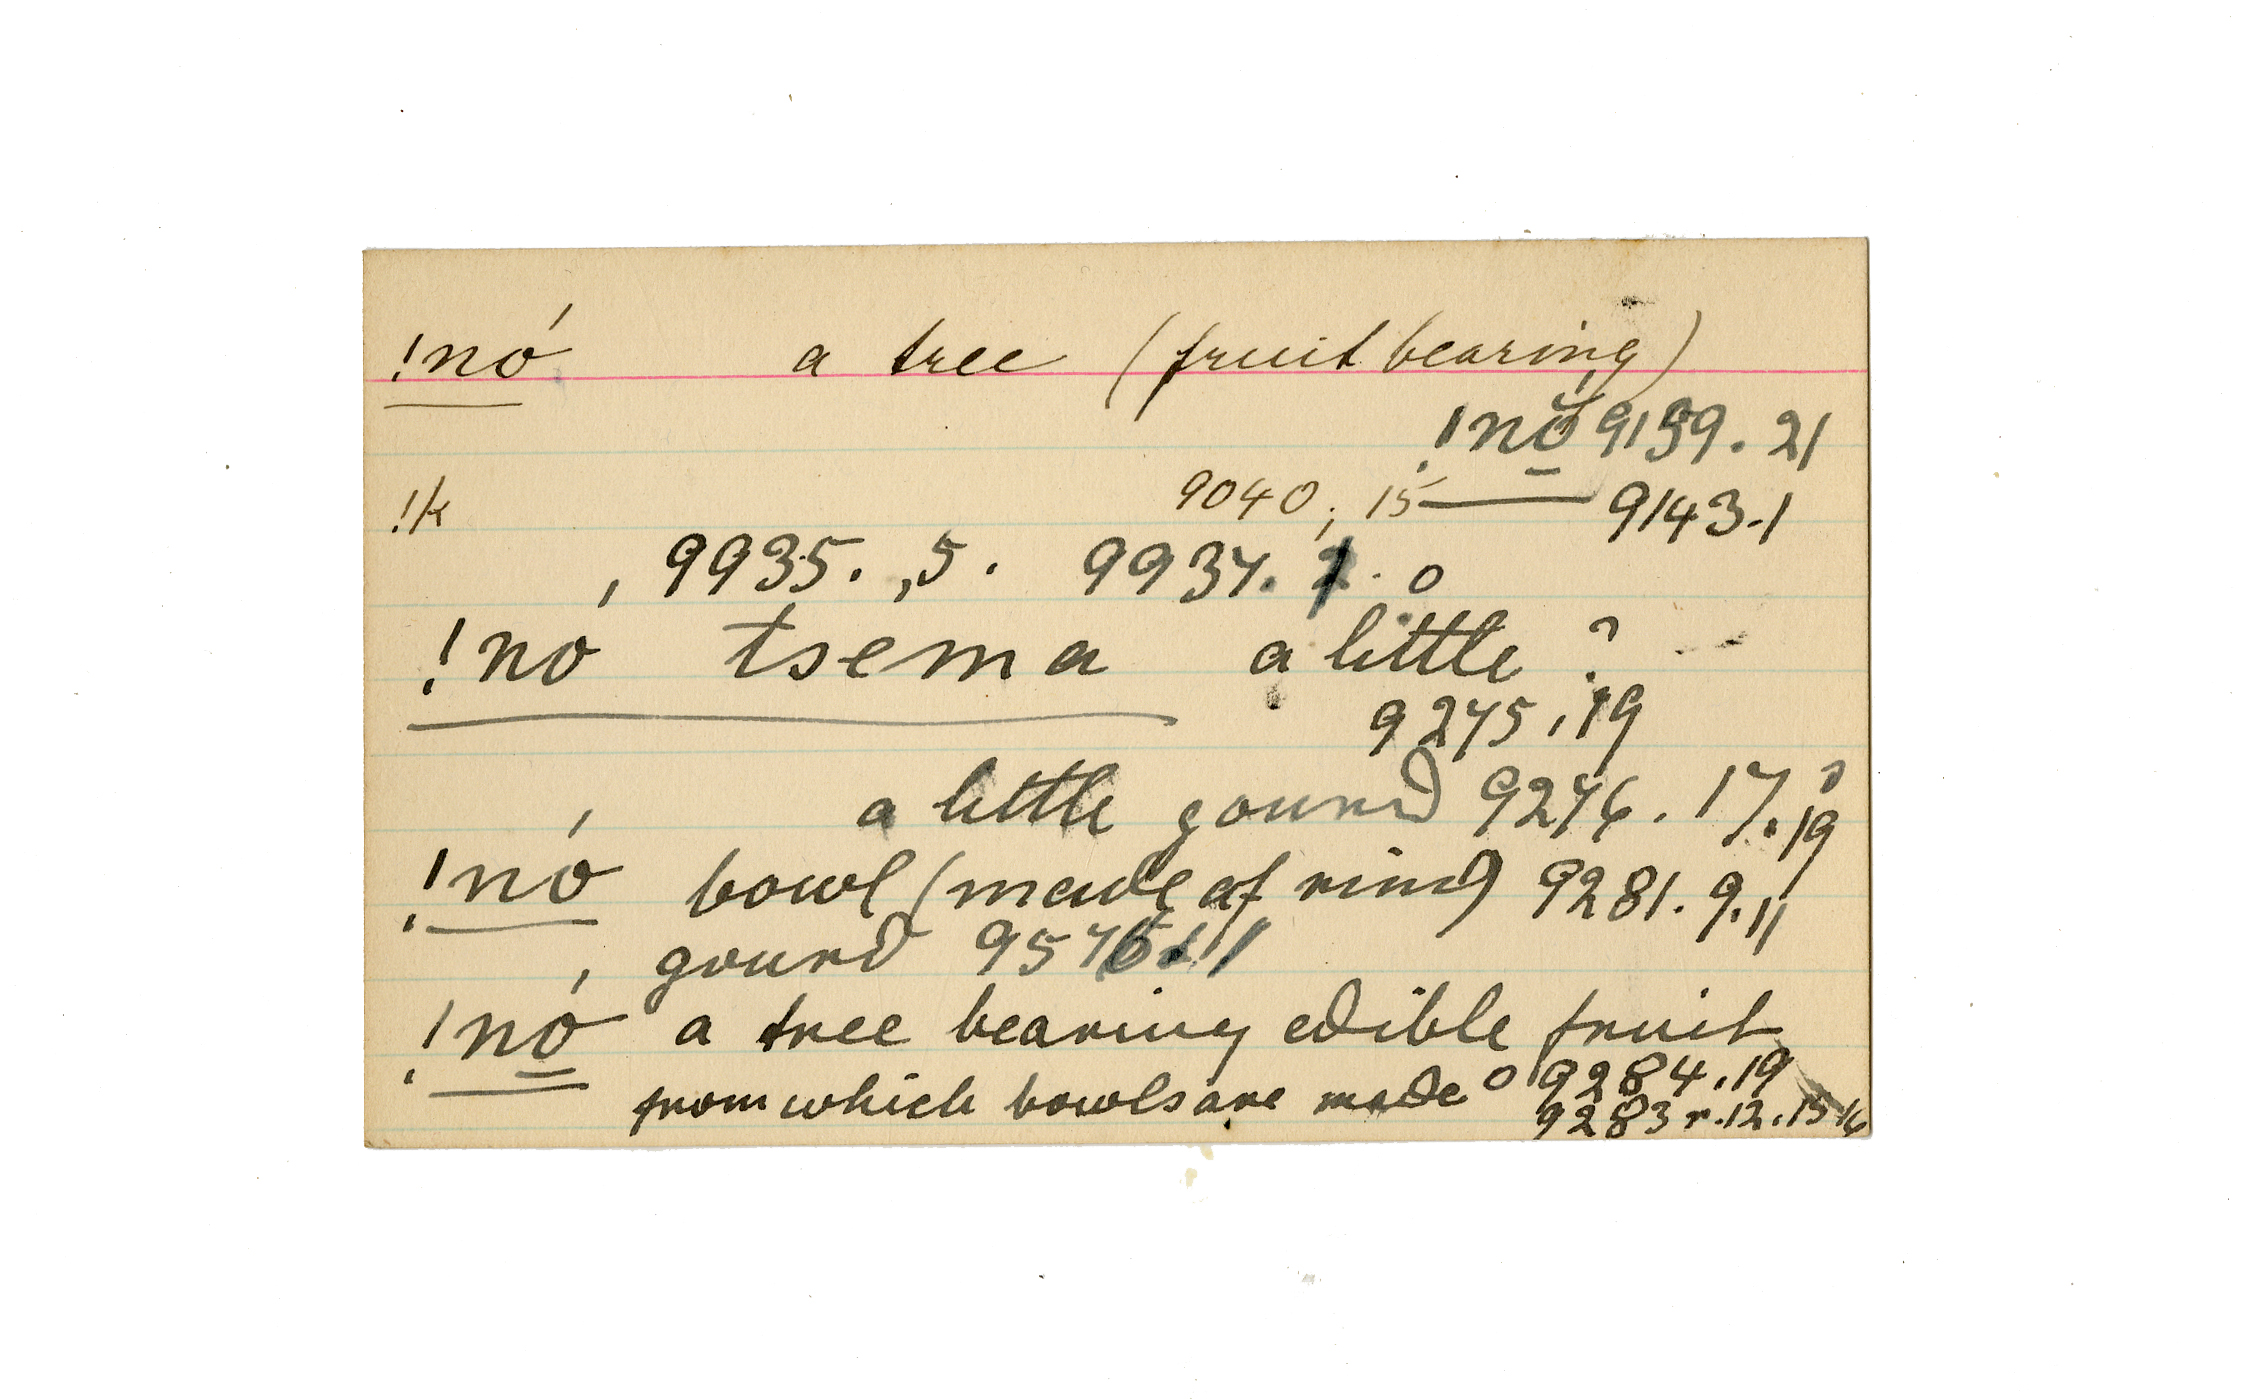 !nó a tree (fruit bearing)
!nó̆ 9139.21
!k 9040, 15 — 9143.1
, 9935. ,5. 9937. . o
!no tsema a little ?
9275,19
a little gourd 9276. 17.19
!nó bowl (made of rind) 9281. 9.11
, gourd 9576.11
!nó a tree bearing edible fruit
from which bowls are made 9284.19
9283 r.12.15.16